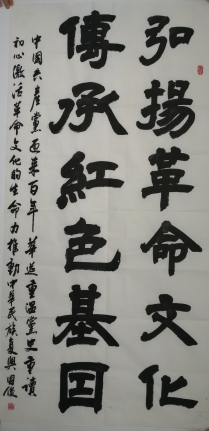 弘揚革命文化
傳承紅色基因
中国共產黨迎来百年華誕重温黨史重讀
初心激活革命文化的生命力推動中华民族复興田俊